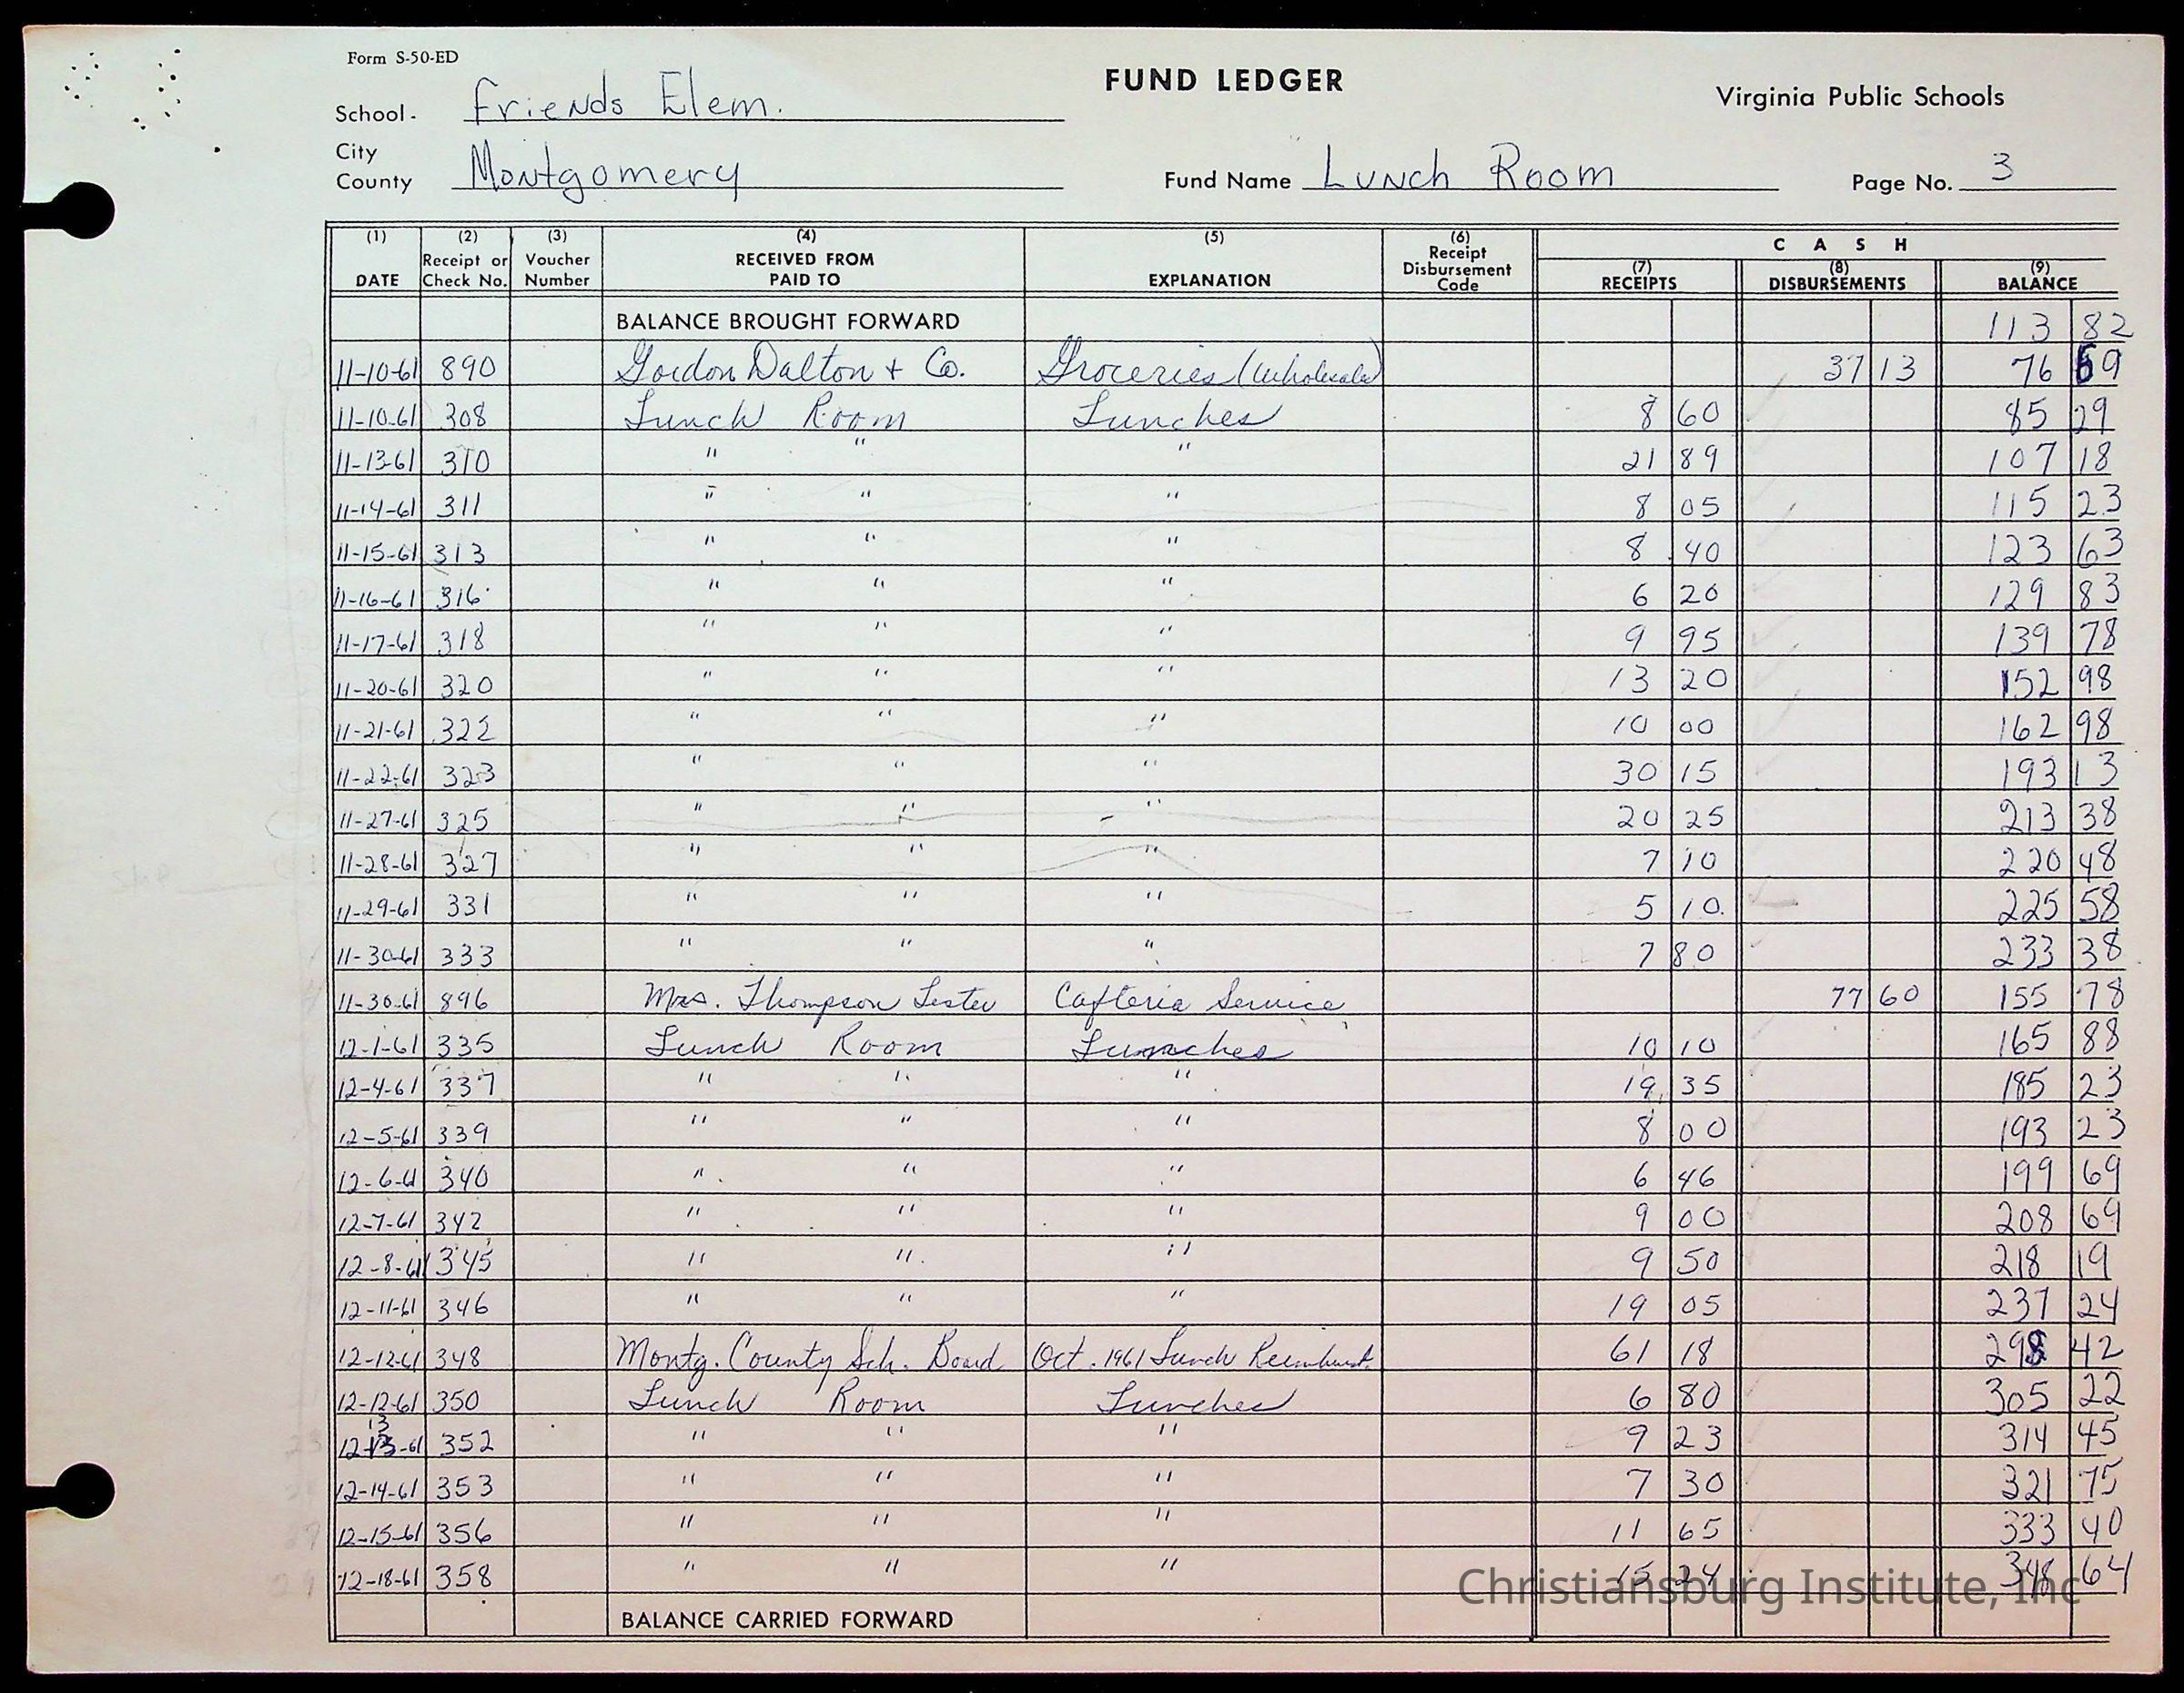 Form S-50-ED
FUND LEDGER
Virginia Public Schools
School - Friends Elem.
City
County Montgomery
Fund Name Lunch Room
Page No. 3
(1) DATE (2) Receipt or Check No. (3) Voucher Number (4) RECEIVED FROM PAID TO (5) EXPLANATION (6) Receipt Disbursement Code CASH (7) RECEIPTS (8) DISBURSEMENTS (9) BALANCE
BALANCE BROUGHT FORWARD 113 82
11-10-61 890 Gordon Dalton + Co. Groceries (Wholesale) 37 13 76 69
11-10-61 308 Lunch Room Lunches 8 60 85 29
11-13-61 310 " " " 21 89 107 18
11-14-61 311 " " " 8 05 115 23
11-15-61 313 " " " 8 40 123 63
11-16-61 316 " " " 6 20 129 83
11-17-61 318 " " " 9 95 139 78
11-20-61 320 " " " 13 20 152 98
11-21-61 322 " " " 10 00 162 98
11-22-61 323 " " " 30 15 193 13
11-27-61 325 " " " 20 25 213 38
11-28-61 327 " " " 7 10 220 48
11-29-61 331 " " " 5 10 225 58
11-30-61 333 " " " 7 80 233 38
11-30-61 896 Mrs. Thompson Lester Cafteria Service 77 60 155 78
12-1-61 335 Lunch Room Lunches 10 10 165 88
12-4-61 337 " " " 19 35 185 23
12-5-61 339 " " " 8 00 193 23
12-6-61 340 " " " 6 46 199 69
12-7-61 342 " " " 9 00 208 69
12-8-61 345 " " " 9 50 218 19
12-11-61 346 " " " 19 05 237 24
12-12-61 348 Montg. County Sch. Board Oct. 1961 Lunch Reimburst. 61 18 298 42
12-12-61 350 Lunch Room Lunches 6 80 305 22
12-13-61 352 " " " 9 23 314 45
12-14-61 353 " " " 7 30 321 75
12-15-61 356 " " " 11 65 333 40
12-18-61 358 " " " 15 24 348 64
BALANCE CARRIED FORWARD
Christiansburg Institute, Inc